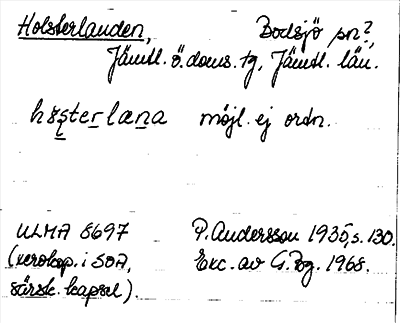 Holsterlanden, Bodsjö sn?,
Jämtl. ö. doms. tg, Jämtl. län.
hɵste̲r læn̲a möjl. ej ordn.
ULMA 8697 P. Andersson 1935, s. 130.
(xerokop. i SOA, Exc. av G. Bg. 1968.
särsk. kapsel).